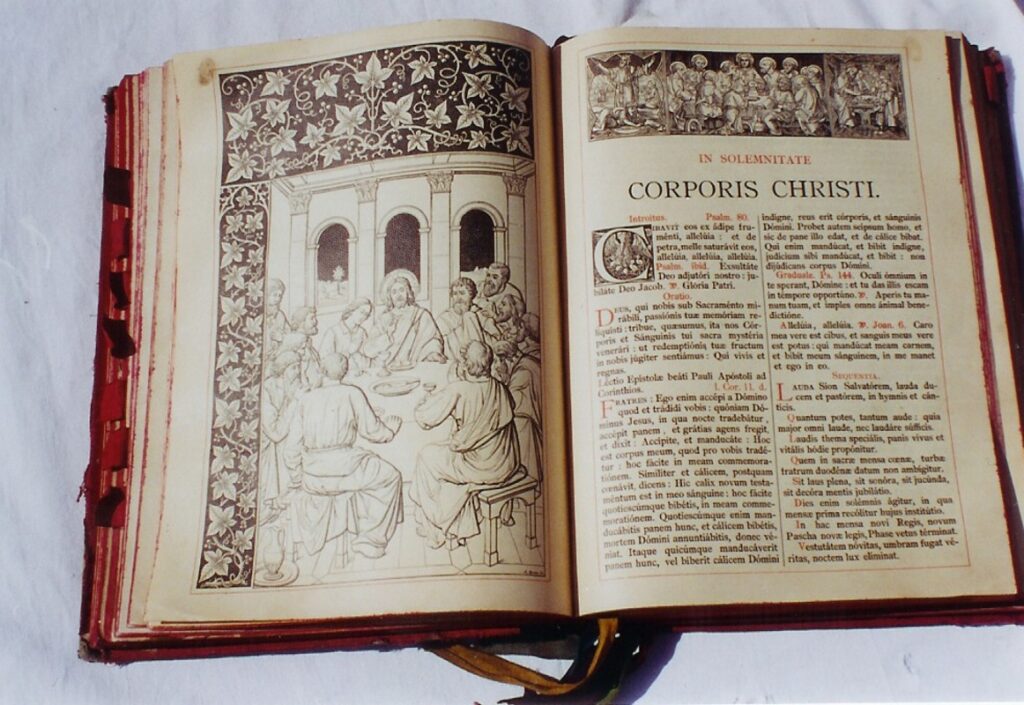 IN SOLEMNITATE
CORPORIS CHRISTI.
Introitus. Psalm. 80.
CIBAVIT eos ex ádipe fru-
ménti, allelúia : et de
petra, melle saturávit eos,
allelúia, allelúia, allelúia.
Psalm. ibid. Exsultáte
Deo adjutóri nostro : ju-
biláte Deo Jacob. ℣. Glória Patri.
Oratio.
DEUS, qui nobis sub Sacraménto mi-
rábili, passiónis tuæ memóriam re-
liquísti : tríbue, quǽsumus, ita nos Cór-
poris et Sánguinis tui sacra mystéria
venerári : ut redemptiónis tuæ fructum
in nobis júgiter sentiámus : Qui vivis et
regnas.
Léctio Epístolæ beáti Pauli Apóstoli ad
Corínthios. I. Cor. 11. d.
FRATRES : Ego enim accépi a Dómino
quod et trádidi vobis : quóniam Dó-
minus Jesus, in qua nocte tradebátur,
accépit panem, et grátias agens fregit,
et dixit : Accípite, et manducáte : Hoc
est corpus meum, quod pro vobis tradé-
tur : hoc fácite in meam commemora-
tiónem. Simíliter et cálicem, postquam
cœnávit, dicens : Hic calix novum testa-
méntum est in meo sánguine : hoc fácite
quotiescúmque bibétis, in meam comme-
moratiónem. Quotiescúmque enim man-
ducábitis panem hunc, et cálicem bibétis,
mortem Dómini annuntiábitis, donec vé-
niat. Itaque quicúmque manducáverit
panem hunc, vel bíberit cálicem Dómini
indígne, reus erit córporis, et sánguinis
Dómini. Probet autem seípsum homo, et
sic de pane illo edat, et de cálice bibat.
Qui enim mandúcat, et bibit indígne,
judícium sibi mandúcat, et bibit : non
dijúdicans corpus Dómini.
Graduale. Ps. 144. Oculi ómnium in
te sperant, Dómine : et tu das illis escam
in témpore opportúno. ℣. Aperis tu ma-
num tuam, et imples omne ánimal bene-
dictióne.
Allelúia, allelúia. ℣. Joan. 6. Caro
mea vere est cibus, et sanguis meus vere
est potus : qui mandúcat meam carnem,
et bibit meum sánguinem, in me manet
et ego in eo.
SEQUENTIA.
LAUDA Sion Salvatórem, lauda du-
cem et pastórem, in hymnis et cán-
ticis.
Quantum potes, tantum aude : quia
major omni laude, nec laudáre súfficis.
Laudis thema speciális, panis vivus et
vitális hódie propónitur.
Quem in sacræ mensa cœnæ, turbæ
fratrum duodénæ datum non ambígitur.
Sit laus plena, sit sonóra, sit jucúnda,
sit decóra mentis jubilátio.
Dies enim solémnis ágitur, in qua
mensæ prima recólitur hujus institútio.
In hac mensa novi Regis, novum
Pascha novæ legis, Phase vetus términat.
Vetustátem nóvitas, umbram fugat vé-
ritas, noctem lux elíminat.